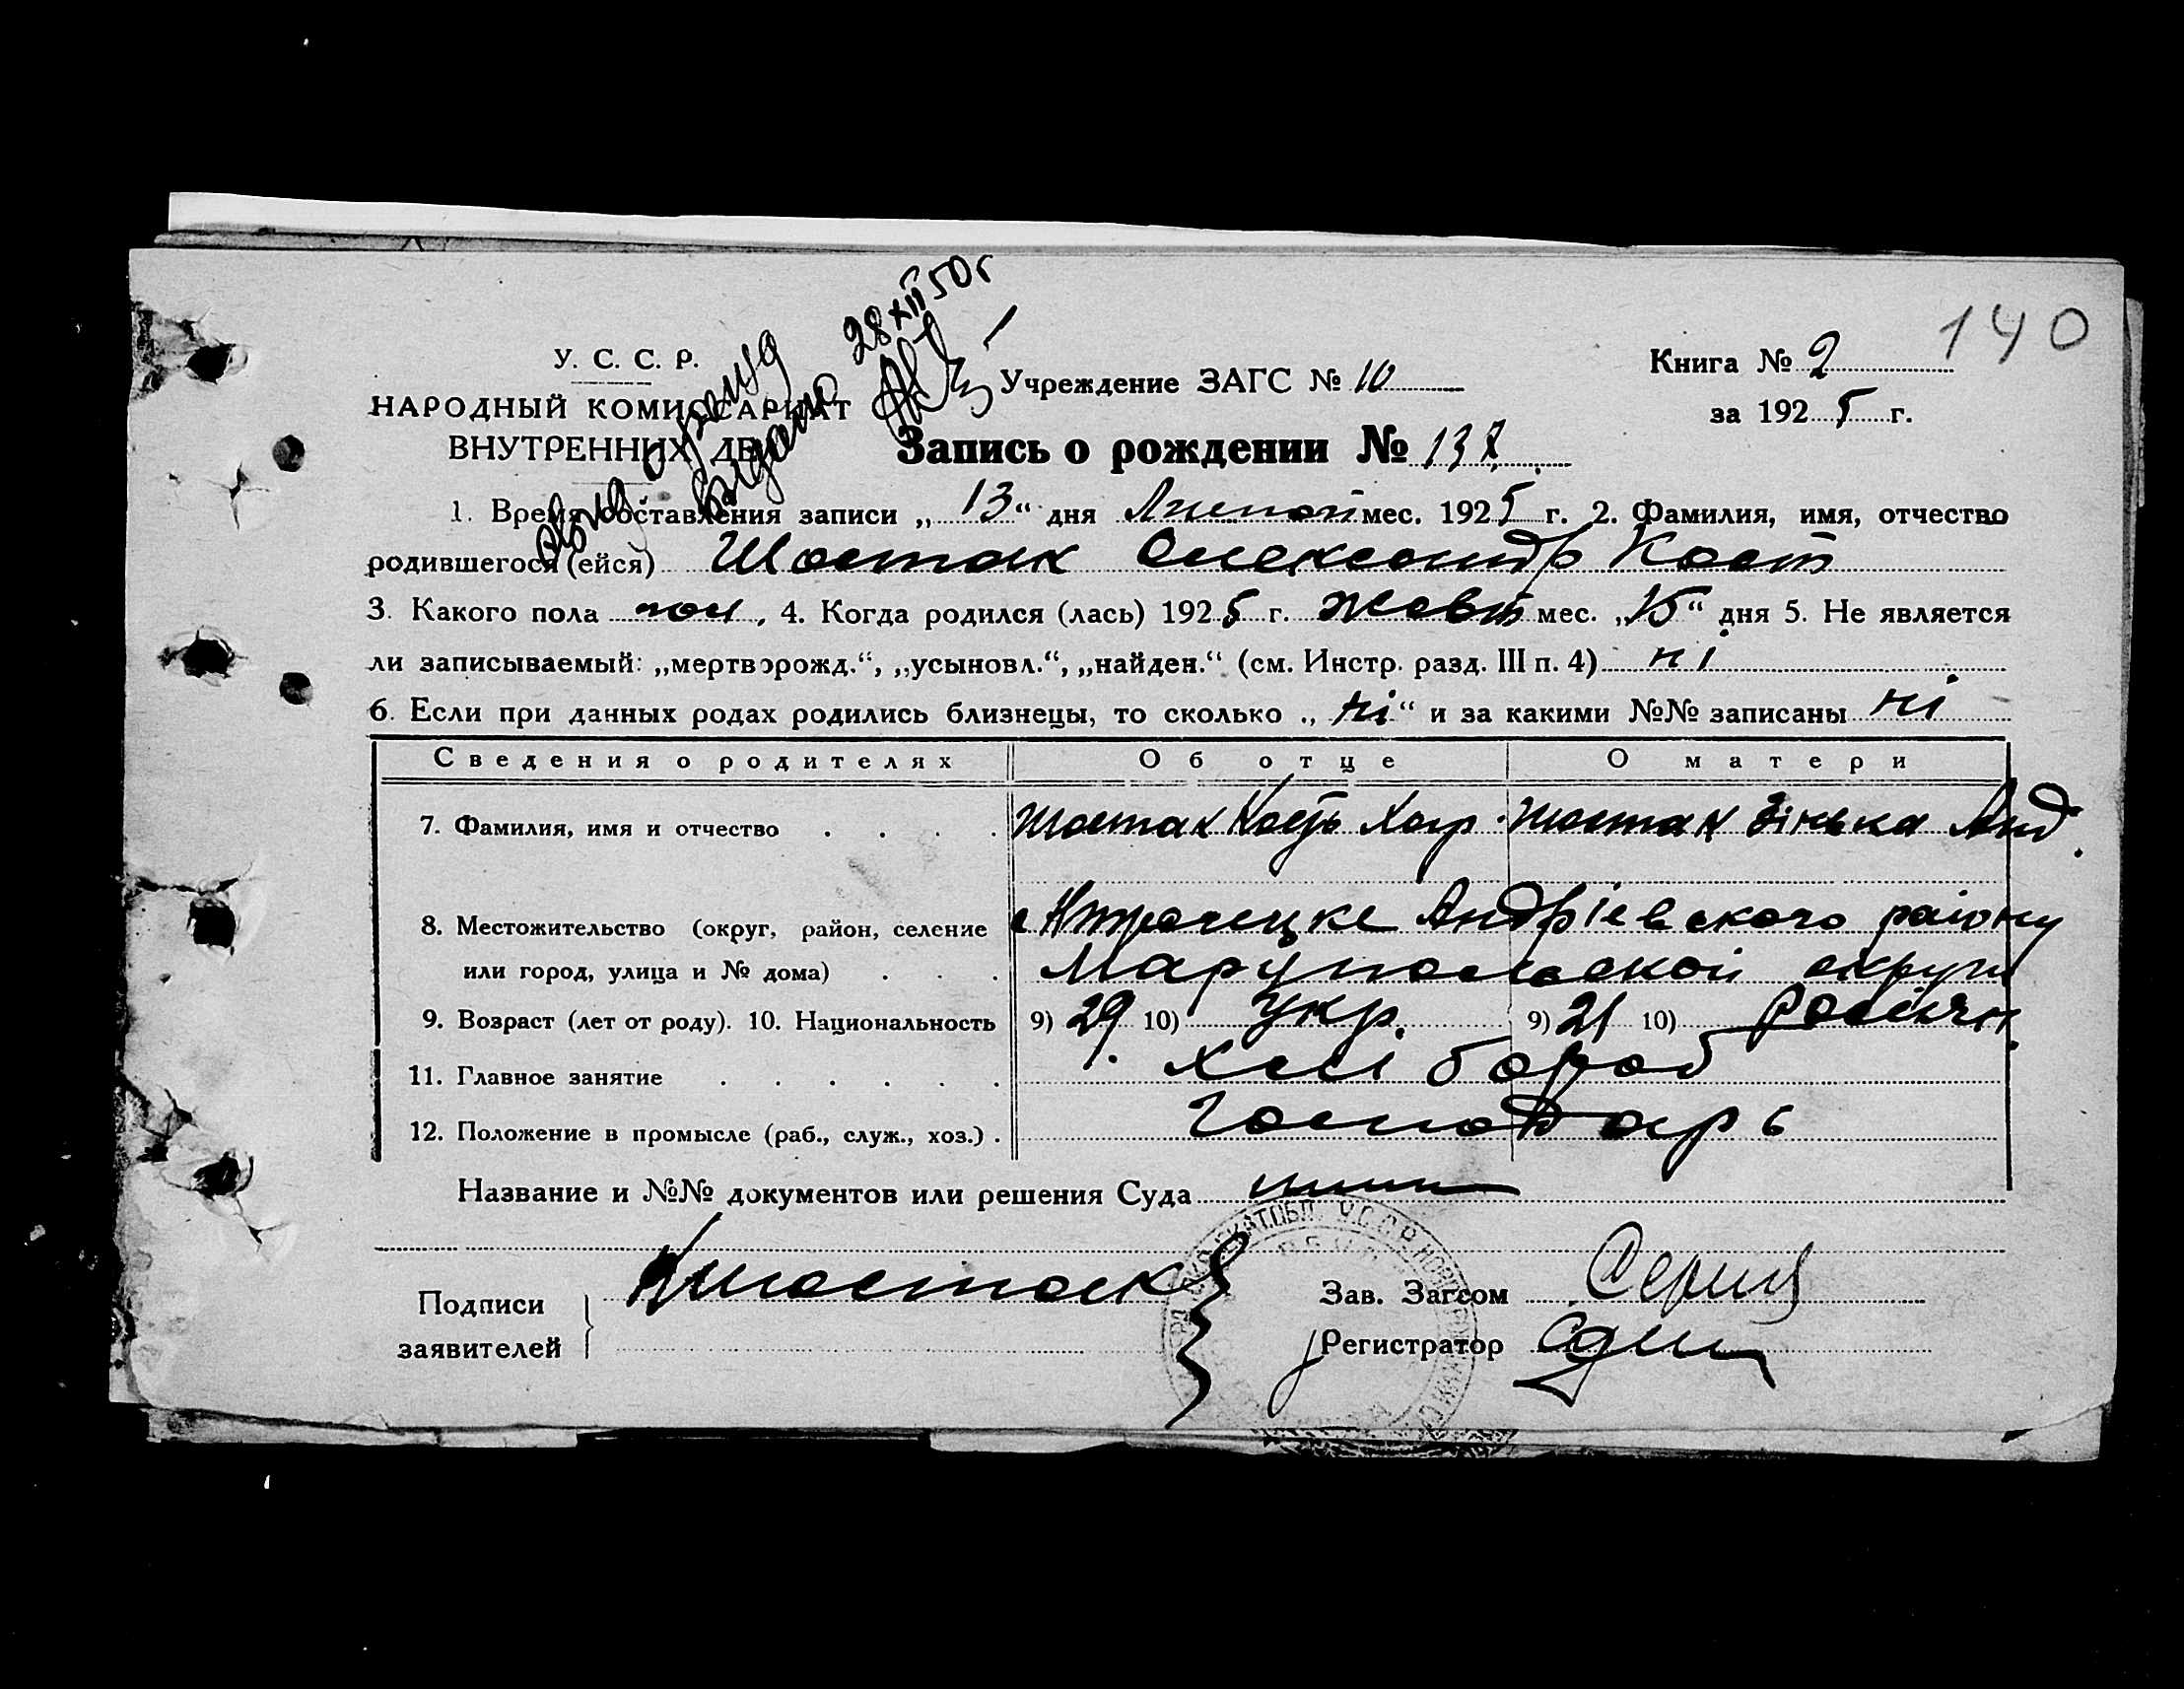 140
28 XII 50 г
У. С. С. Р.
НАРОДНЫЙ КОМИССАРИАТ
ВНУТРЕННИХ ДЕЛ
Учреждение ЗАГС № 10
Книга № 2
за 1925 г.
Запись о рождении № 137
1. Время составления записи „13“ дня мес. 1925 г. 2. Фамилия, имя, отчество
родившегося (ейся) Шостак Олександр Кост
3. Какого пола чол, 4. Когда родился (лась) 1925 г. Жовт мес. „15“ дня 5. Не является
ли записываемый: „мертворожд.“, „усыновл.“, „найден.“ (см. Инстр. разд. III п. 4) ні
6. Если при данных родах родились близнецы, то сколько „ні“ и за какими №№ записаны ні
Сведения о родителях Об отце О матери
7. Фамилия, имя и отчество Шостак Кость Хар. Шостак Зінька Анд.
8. Местожительство (округ, район, селение Андріевского району
или город, улица и № дома) Марупольскої округи
9. Возраст (лет от роду). 10. Национальность 9) 29 10) укр. 9) 21 10)
11. Главное занятие хлібороб
12. Положение в промысле (раб., служ., хоз.) господарь
Название и №№ документов или решения Суда
Подписи
заявителей
КШостак
Зав. Загсом
Регистратор